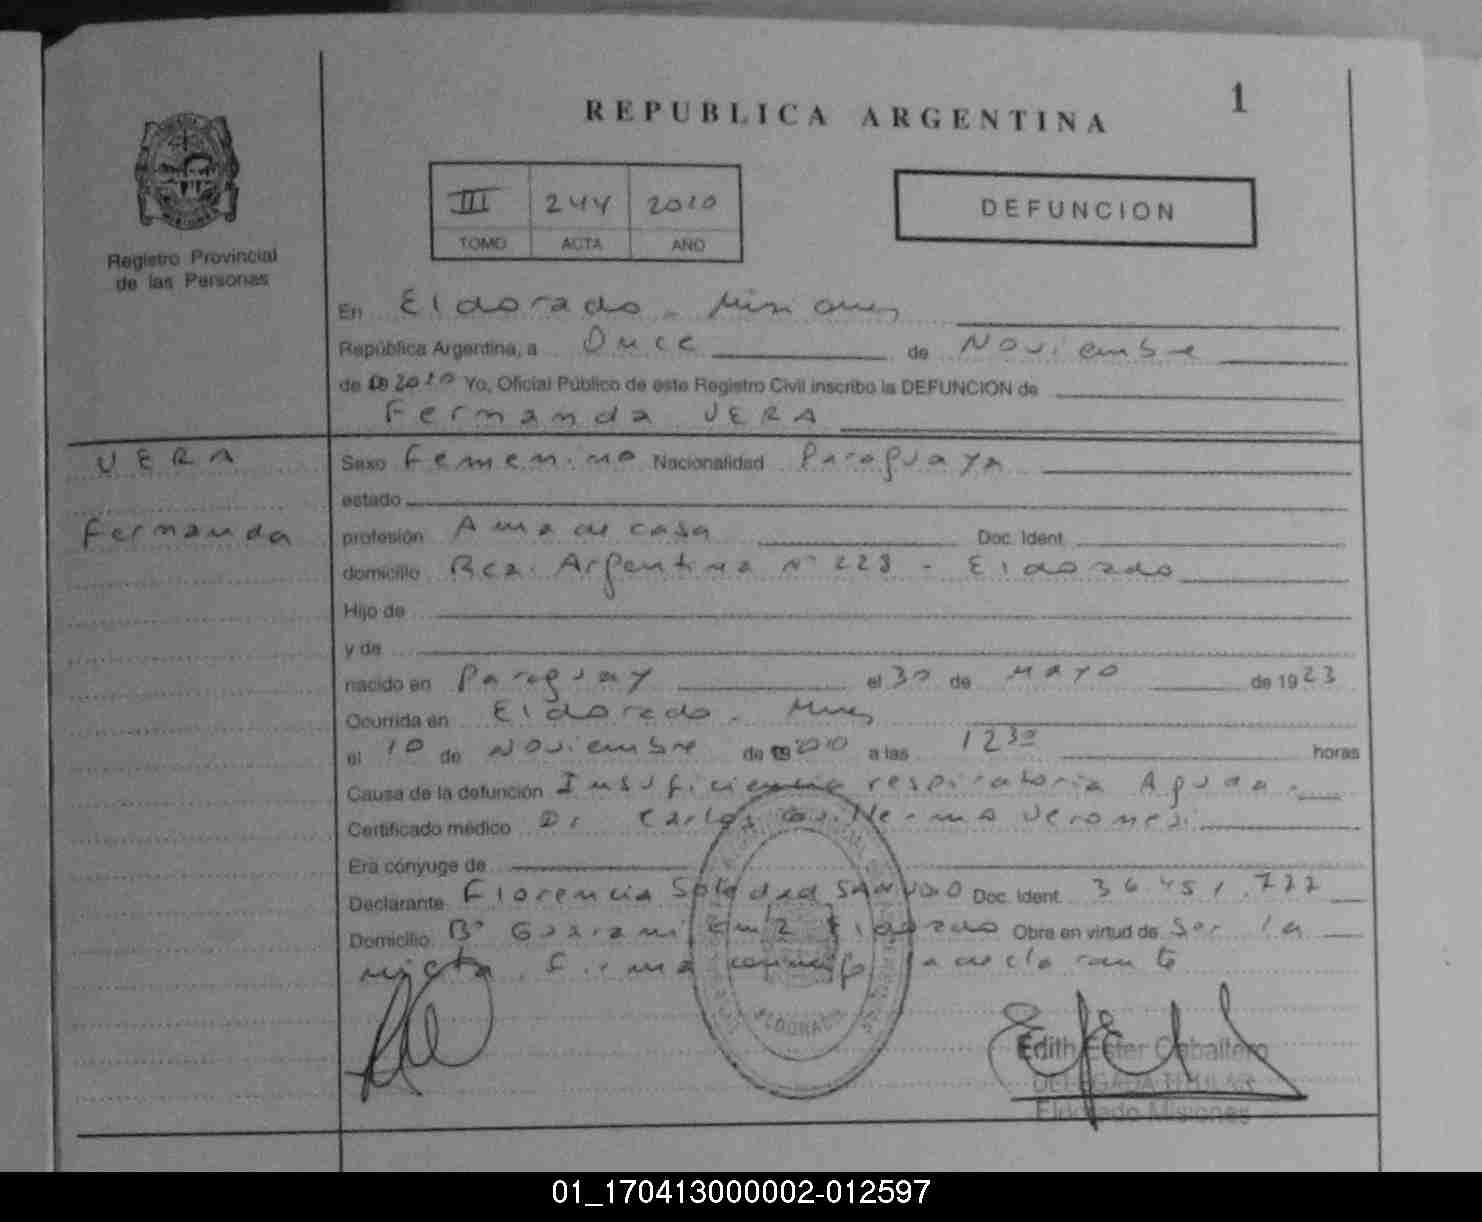 REPUBLICA ARGENTINA
1
III 244 2010
TOMO ACTA AÑO
DEFUNCION
Registro Provincial
de las Personas
En Eldorado - Misiones
República Argentina, a Once de Noviembre
de 2010 Yo, Oficial Público de este Registro Civil inscribo la DEFUNCION de
Fernanda VERA
VERA
Fernanda
Sexo Femenino Nacionalidad Paraguaya
estado
profesión Ama de casa Doc. Ident.
domicilio Rca. Argentina N° 228 - Eldorado
Hijo de
y de
nacido en Paraguay el 30 de Mayo de 1923
Ocurrida en Eldorado - Mnes
el 10 de Noviembre de 2010 a las 12 30 horas
Causa de la defunción Insuficiencia respiratoria Aguda.
Certificado médico Dr Carlos Guillermo Veronesi
Era cónyuge de
Declarante Florencia Soledad Doc. Ident. 36.451.722
Domicilio B° Guarani Km 2 Eldorado Obra en virtud de Ser la
nieta. Firma la declarante
ELDORADO
Edith Ester Caballero
DELEGADA TITULAR
Eldorado Misiones
01_170413000002-012597